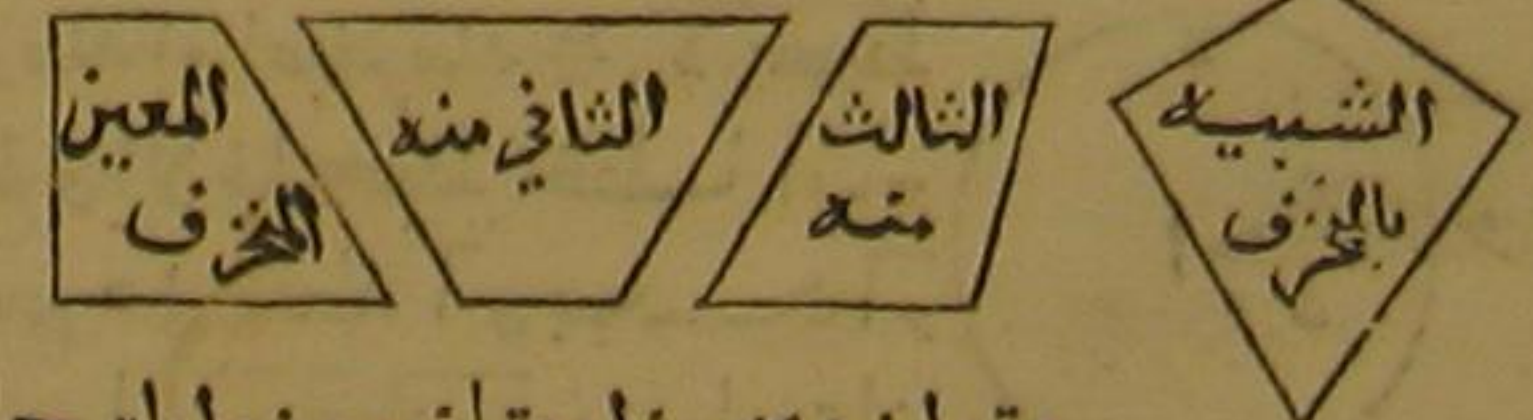 الشبيه
بالمنحرف
الثالث
منه
الثاني منه
المعين
المنحرف